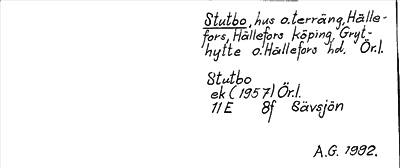 Stutbo, hus o. terräng, Hälle-
fors, Hällefors köping, Gryt-
hytte o. Hällefors hd. Ör.l.
Stutbo
ek (1957) Ör.l.
11E 8f Sävsjön
A.G. 1992.